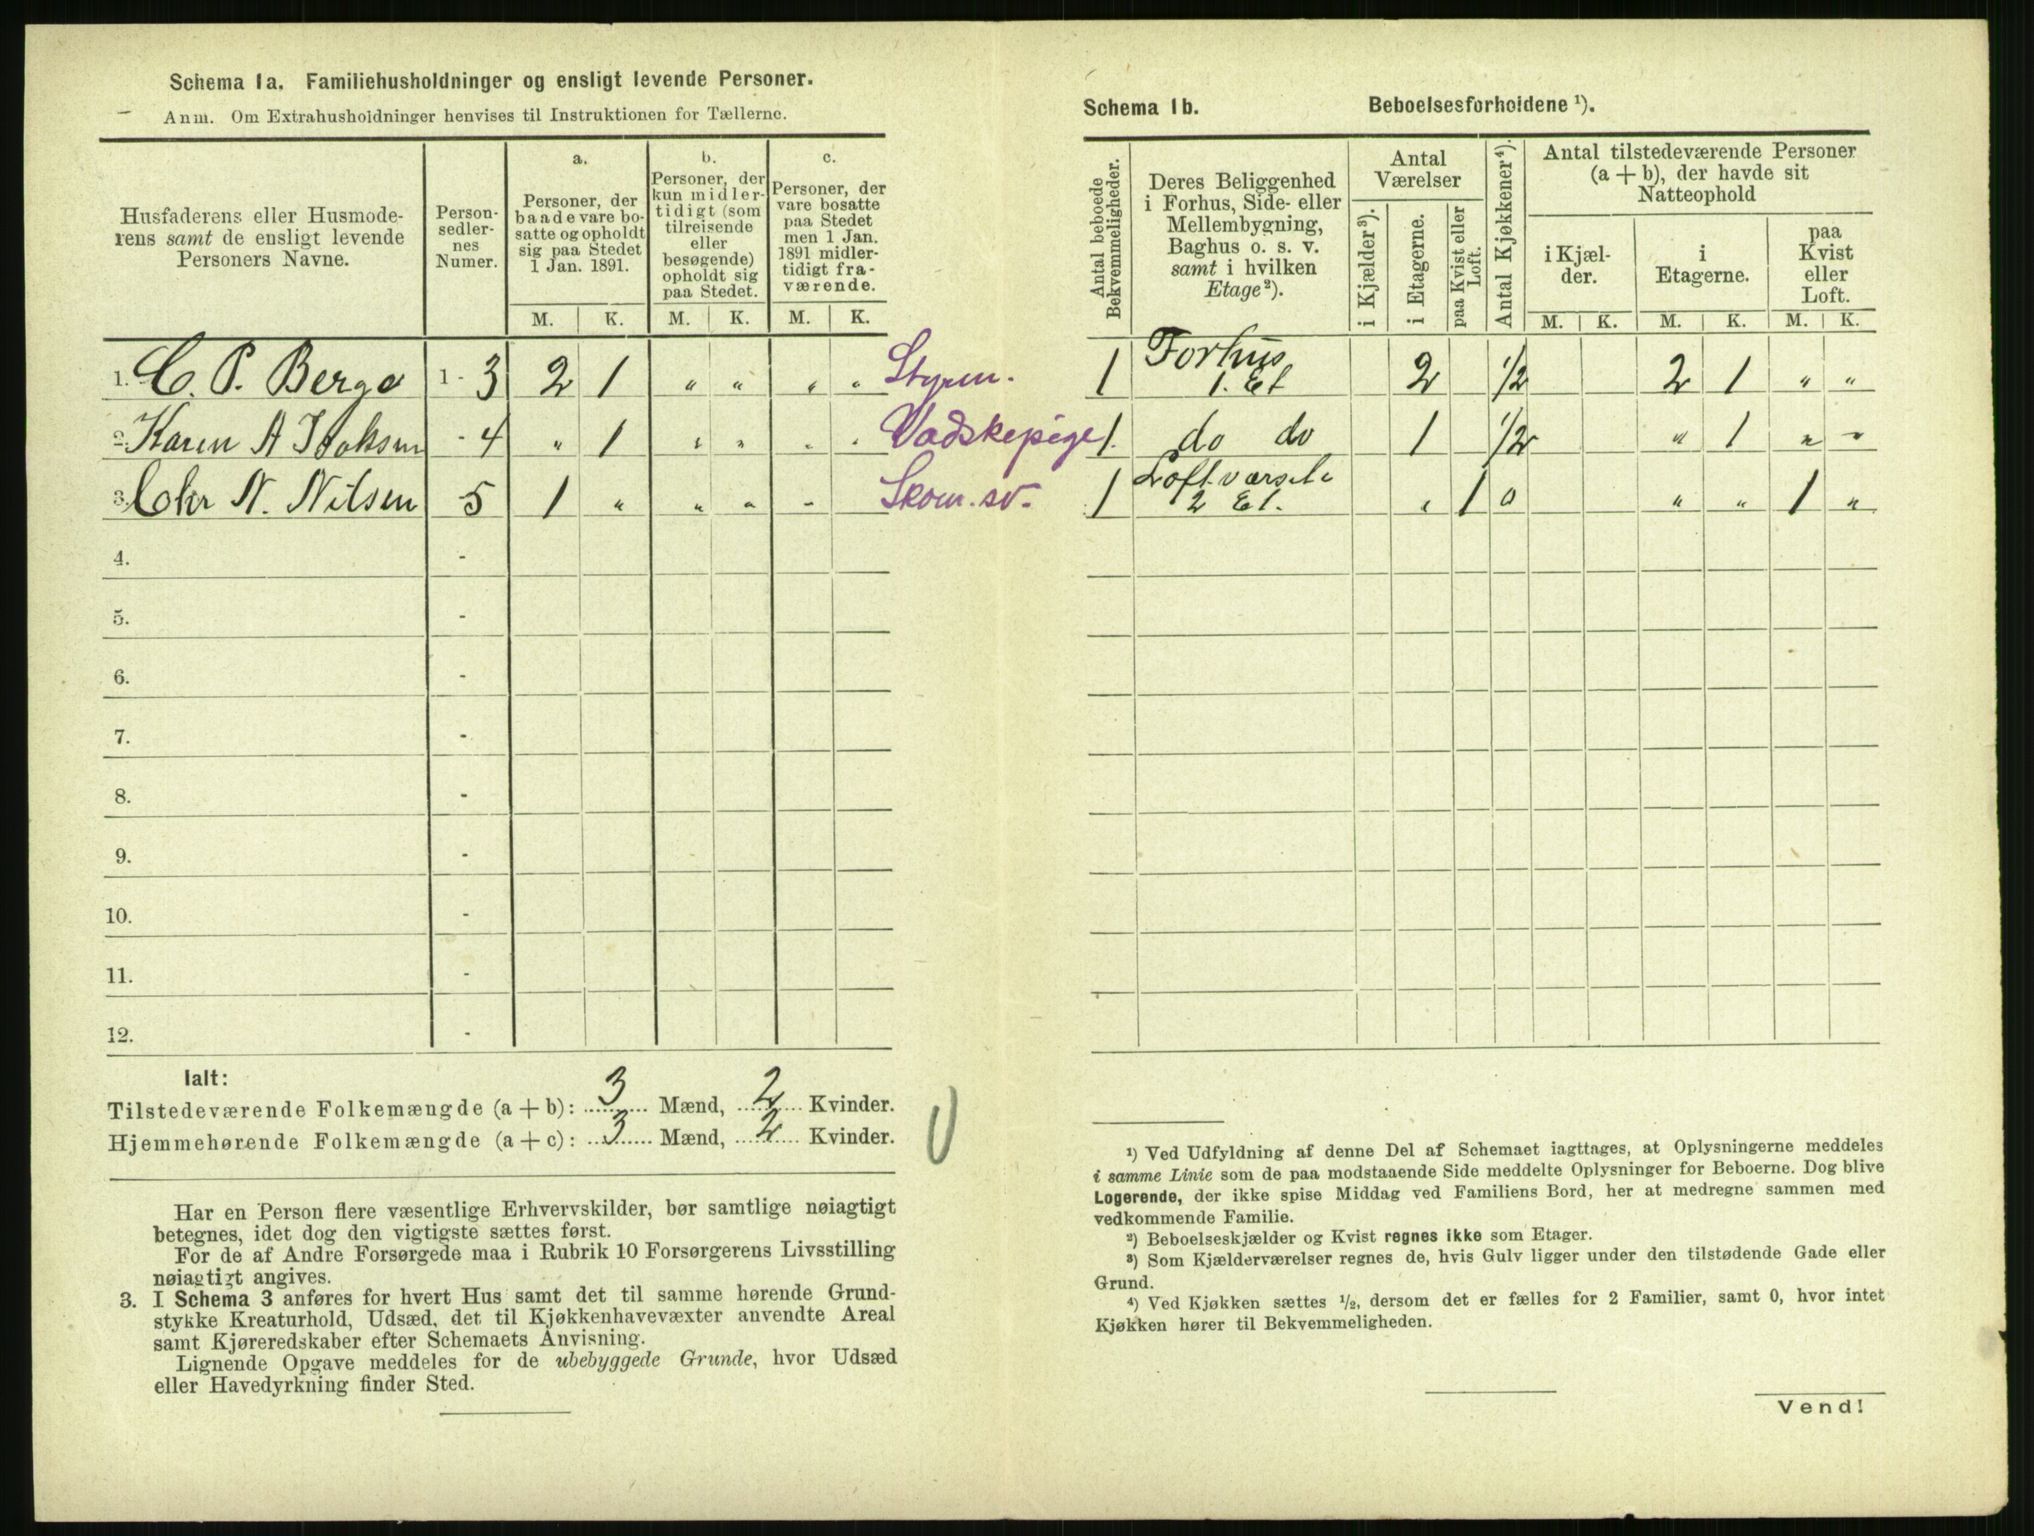 Schema 1a. Familiehusholdninger og ensligt levende Personer.
Anm. Om Extrahusholdninger henvises til Instruktionen for Tællerne.
Husfaderens eller Husmode-
rens samt de ensligt levende
Personers Navne.
Person-
sedler-
nes
Numer.
a.
Personer, der
baade vare bo-
satte og opholdt
sig paa Stedet
1 Jan. 1891.
b.
Personer, der
kun midler-
tidigt (som
tilreisende
eller
besøgende)
opholdt sig
paa Stedet.
c.
Personer, der
vare bosatte
paa Stedet
men 1 Jan.
1891 midler-
tidigt fra-
værende.
M. K. M. K. M. K.
1. C. P. Berge 1 - 3 2 1 " " " " Styrm.
2. Karen A Isaksen - 4 " 1 " " " " Vadskepige
3. Chr N. Nilsen - 5 1 " " " " Skom. sv.
4. -
5. -
6. -
7. -
8. -
9. -
10. -
11. -
12. -
Ialt:
Tilstedeværende Folkemængde (a + b): 3 Mænd, 2 Kvinder.
Hjemmehørende Folkemængde (a + c): 3 Mænd, 2 Kvinder.
Har en Person flere væsentlige Erhvervskilder, bør samtlige nøiagtigt
betegnes, idet dog den vigtigste sættes først.
For de af Andre Forsørgede maa i Rubrik 10 Forsørgerens Livsstilling
nøiagtigt angives.
3. I Schema 3 anføres for hvert Hus samt det til samme hørende Grund-
stykke Kreaturhold, Udsæd, det til Kjøkkenhavevæxter anvendte Areal
samt Kjøreredskaber efter Schemaets Anvisning.
Lignende Opgave meddeles for de ubebyggede Grunde, hvor Udsæd
eller Havedyrkning finder Sted.
Schema 1b. Beboelsesforholdene ¹).
Antal beboede
Bekvemmeligheder.
Deres Beliggenhed
i Forhus, Side- eller
Mellembygning,
Baghus o. s. v.
samt i hvilken
Etage²).
Antal
Værelser
i Kjælder³).
i Etagerne.
paa Kvist eller
Loft.
Antal Kjøkkener⁴).
Antal tilstedeværende Personer
(a + b), der havde sit
Natteophold
i Kjæl-
der.
i
Etagerne.
paa
Kvist
eller
Loft.
M. K. M. K. M. K.
1 Forhus
1. Et 2 1/2 2 1 " "
1. do do 1 1/2 " 1 " "
1 Loftværsele
2 Et. " 1 0 " " 1 "
¹) Ved Udfyldning af denne Del af Schemaet iagttages, at Oplysningerne meddeles
i samme Linie som de paa modstaaende Side meddelte Oplysninger for Beboerne. Dog blive
Logerende, der ikke spise Middag ved Familiens Bord, her at medregne sammen med
vedkommende Familie.
²) Beboelseskjælder og Kvist regnes ikke som Etager.
³) Som Kjælderværelser regnes de, hvis Gulv ligger under den tilstødende Gade eller
Grund.
⁴) Ved Kjøkken sættes ½, dersom det er fælles for 2 Familier, samt 0, hvor intet
Kjøkken hører til Bekvemmeligheden.
Vend!